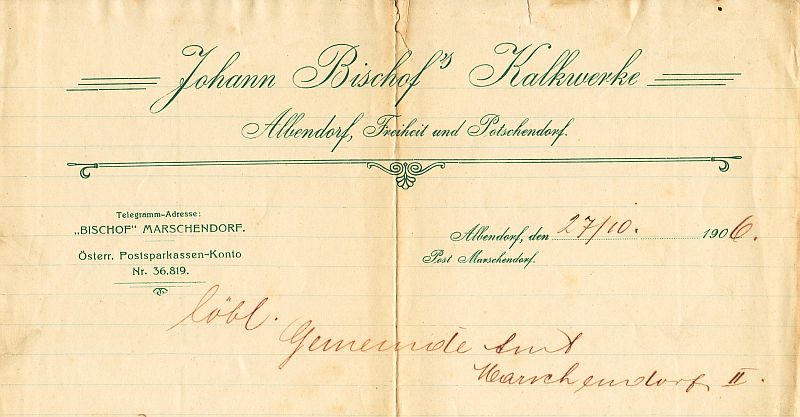 Johann Bischof's Kalkwerke
Albendorf, Freiheit und Potschendorf.
Telegramm-Adresse:
„BISCHOF" MARSCHENDORF.
Österr. Postsparkassen-Konto
Nr. 36.819.
Albendorf, den 27/10. 1906.
Post Marschendorf.
löbl.
Gemeinde Amt
Marschendorf II.